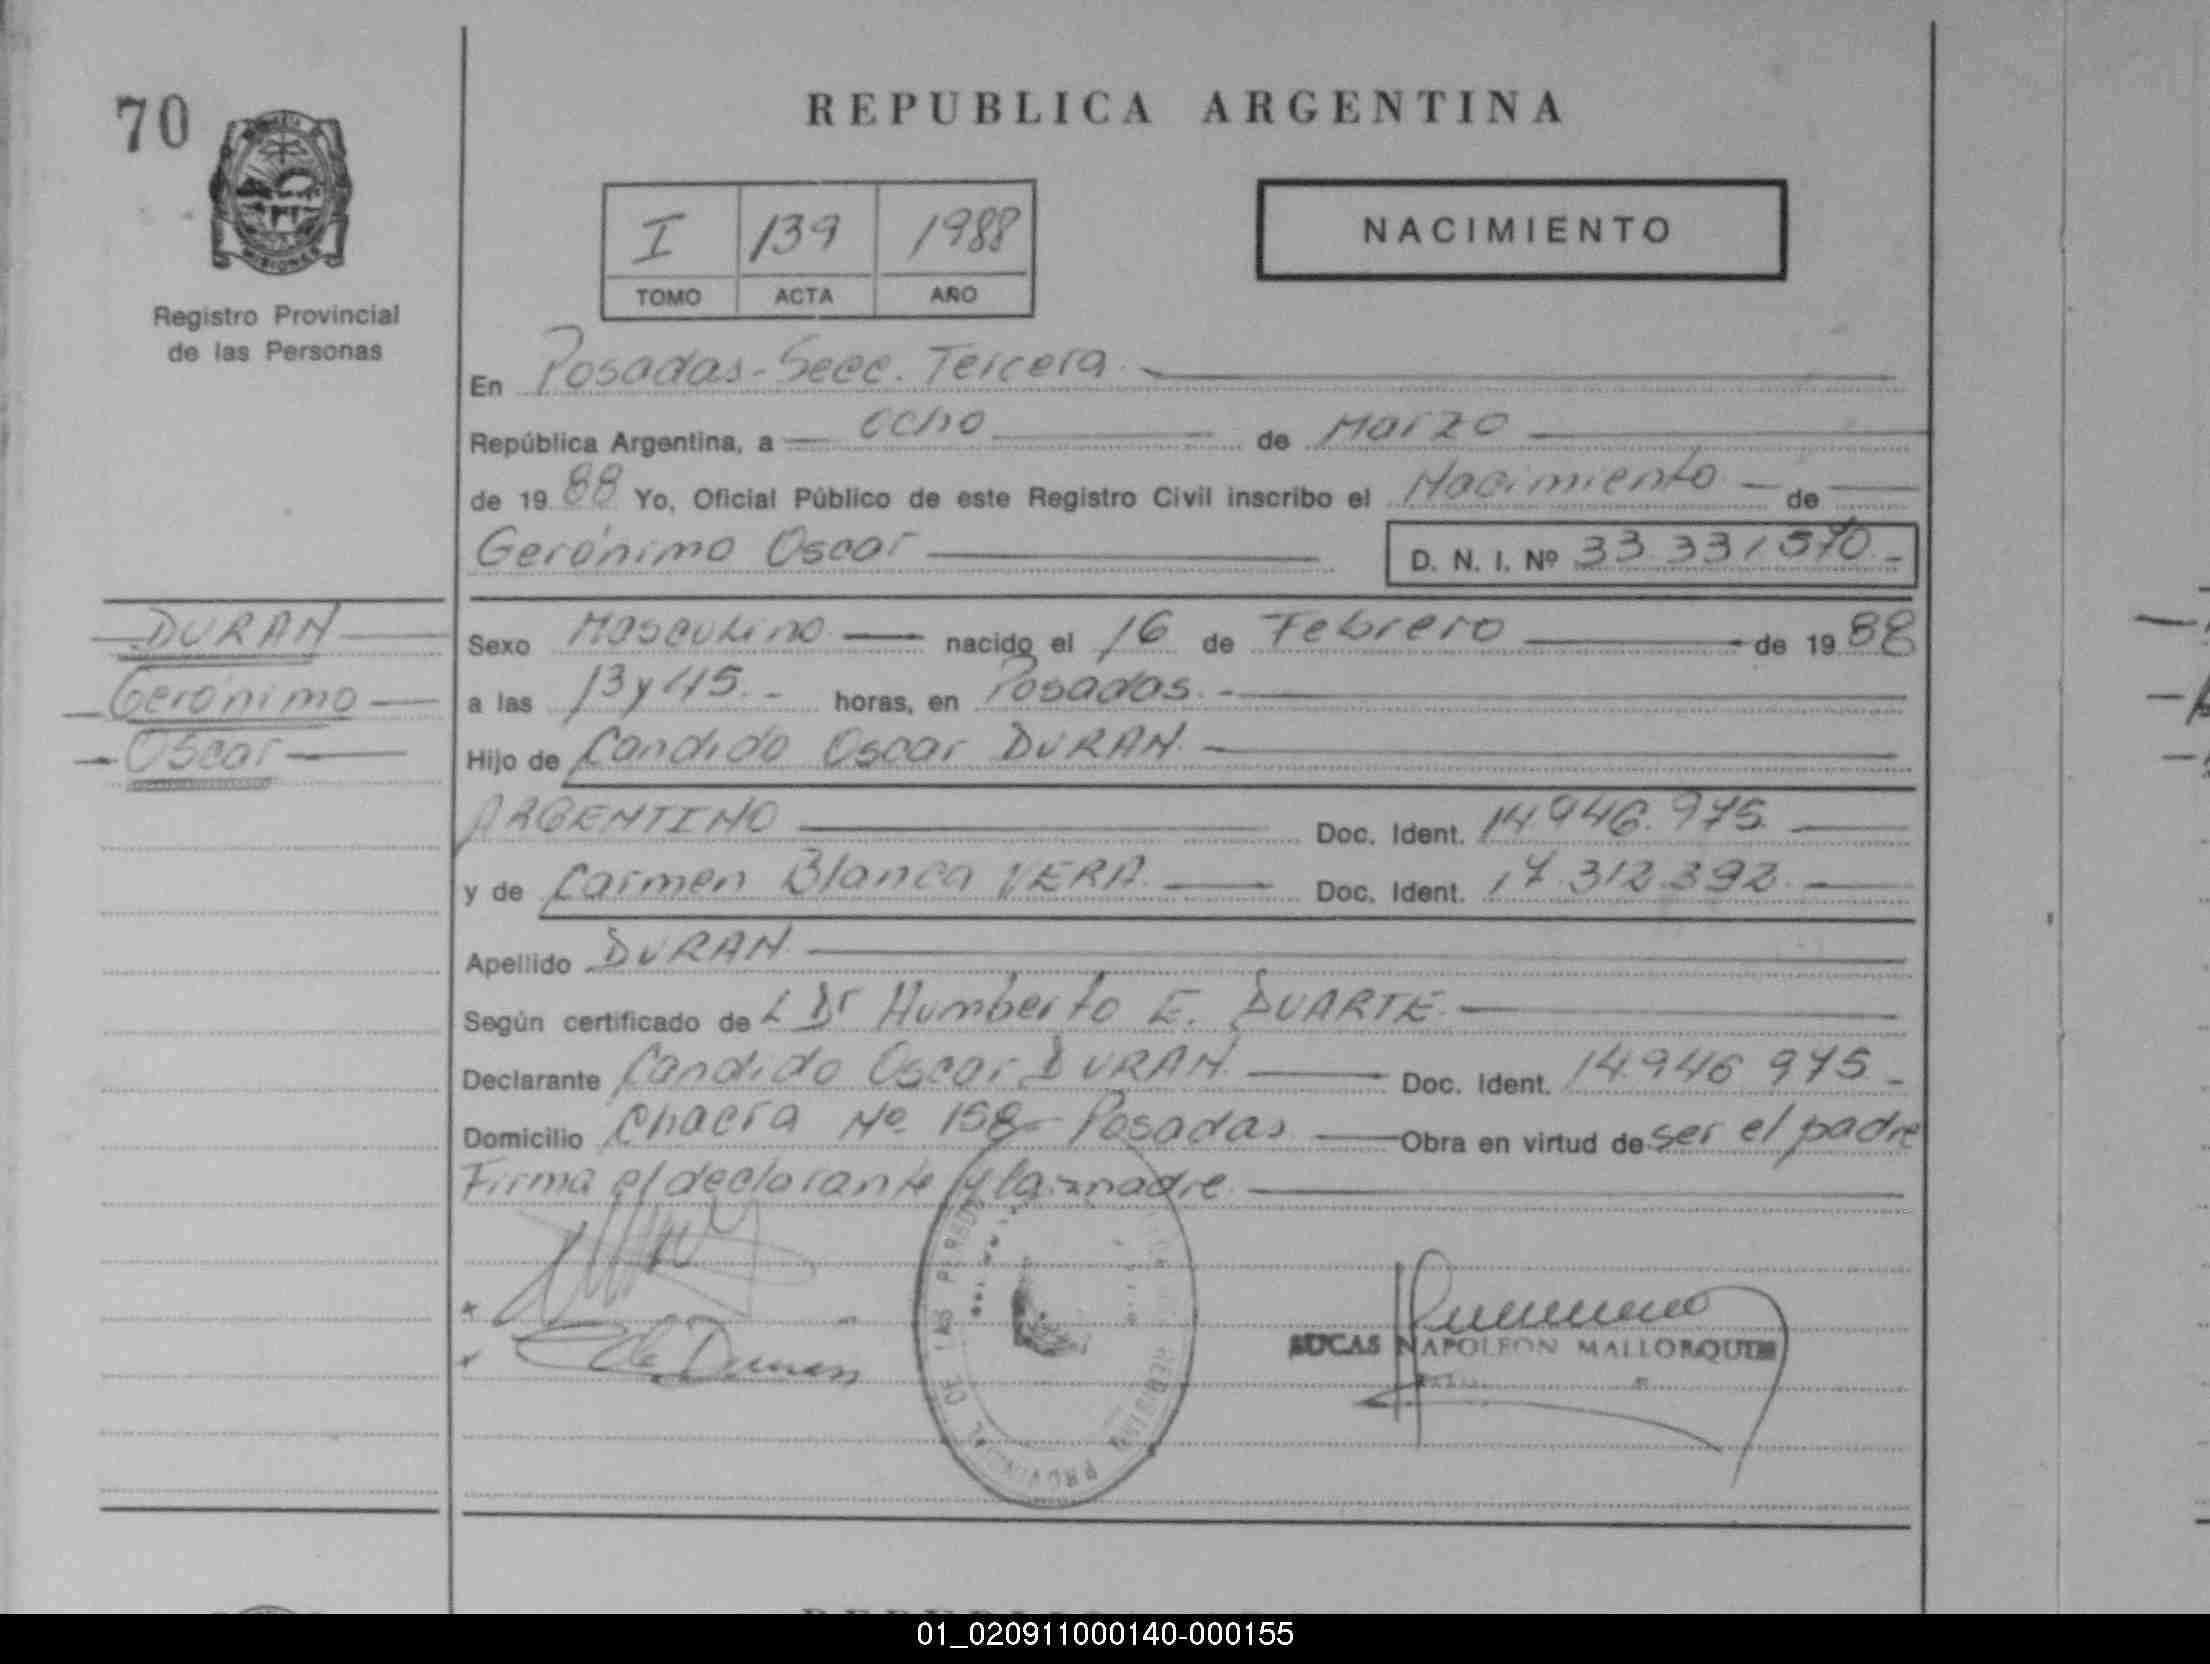 70
REPUBLICA ARGENTINA
MISIONES
Registro Provincial
de las Personas
I 139 1988
TOMO ACTA AÑO
NACIMIENTO
En Posadas - Secc. Tercera
República Argentina, a ocho de Marzo
de 1988 Yo, Oficial Público de este Registro Civil inscribo el Nacimiento de
Gerónimo Oscar
D. N. I. Nº 33.331570.-
DURAN
Gerónimo
Oscar
Sexo Masculino nacido el 16 de Febrero de 1988
a las 13 y 45.- horas, en Posadas.-
Hijo de Candido Oscar DURAN.
ARGENTINO Doc. Ident. 14.946.975
y de Carmen Blanca VERA. Doc. Ident. 17.312.392.
Apellido DURAN.
Según certificado de L Dr Humberto E. DUARTE.
Declarante Candido Oscar DURAN. Doc. Ident. 14.946 975.-
Domicilio Chacra Nº 158- Posadas Obra en virtud de ser el padre
Firma el declarante y la madre.
x
x de Duran
REGISTRO PROVINCIAL DE LAS PERSONAS
NAPOLEON MALLORQUIN
01_020911000140-000155